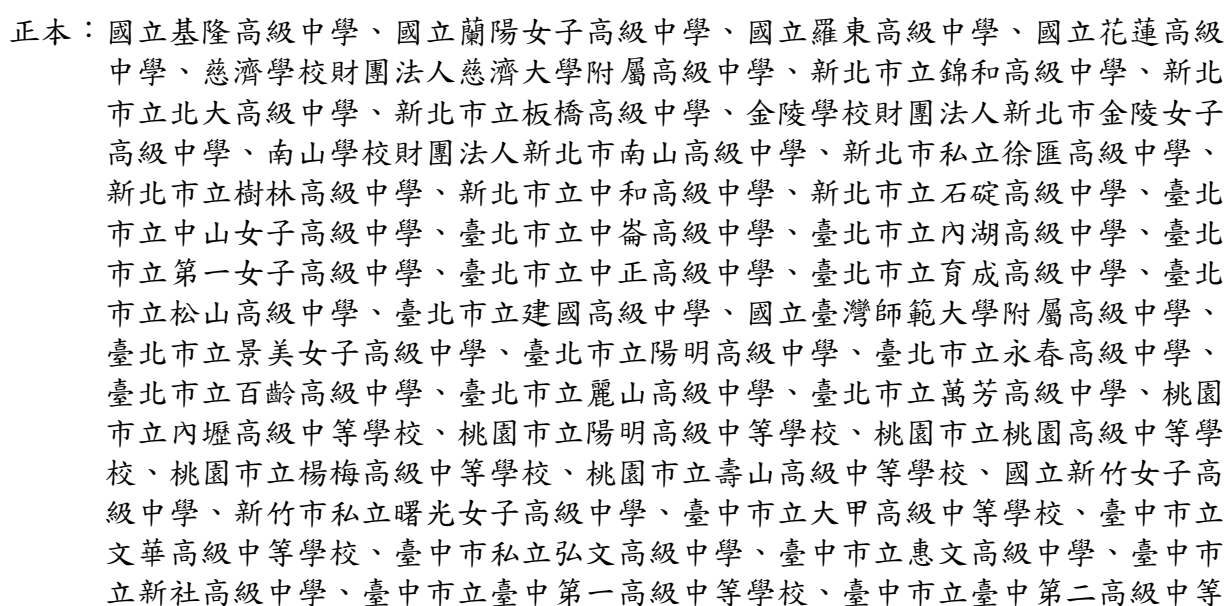 正本：國立基隆高級中學、國立蘭陽女子高級中學、國立羅東高級中學、國立花蓮高級
中學、慈濟學校財團法人慈濟大學附屬高級中學、新北市立錦和高級中學、新北
市立北大高級中學、新北市立板橋高級中學、金陵學校財團法人新北市金陵女子
高級中學、南山學校財團法人新北市南山高級中學、新北市私立徐匯高級中學、
新北市立樹林高級中學、新北市立中和高級中學、新北市立石碇高級中學、臺北
市立中山女子高級中學、臺北市立中崙高級中學、臺北市立內湖高級中學、臺北
市立第一女子高級中學、臺北市立中正高級中學、臺北市立育成高級中學、臺北
市立松山高級中學、臺北市立建國高級中學、國立臺灣師範大學附屬高級中學、
臺北市立景美女子高級中學、臺北市立陽明高級中學、臺北市立永春高級中學、
臺北市立百齡高級中學、臺北市立麗山高級中學、臺北市立萬芳高級中學、桃園
市立內壢高級中等學校、桃園市立陽明高級中等學校、桃園市立桃園高級中等學
校、桃園市立楊梅高級中等學校、桃園市立壽山高級中等學校、國立新竹女子高
級中學、新竹市私立曙光女子高級中學、臺中市立大甲高級中等學校、臺中市立
文華高級中等學校、臺中市私立弘文高級中學、臺中市立惠文高級中學、臺中市
立新社高級中學、臺中市立臺中第一高級中等學校、臺中市立臺中第二高級中等